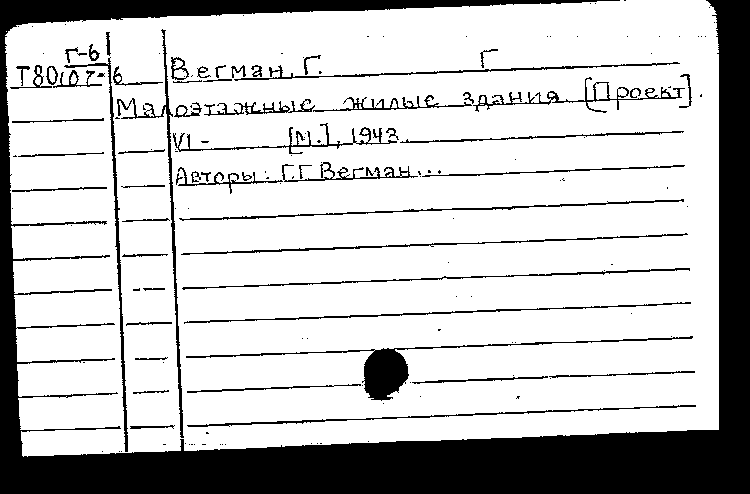 Г-6
Т80/07-6 Вегман, Г. Г
Малоэтажные жилые здания [Проект].
VI - [М.], 1943.
Авторы: Г.Г. Вегман...